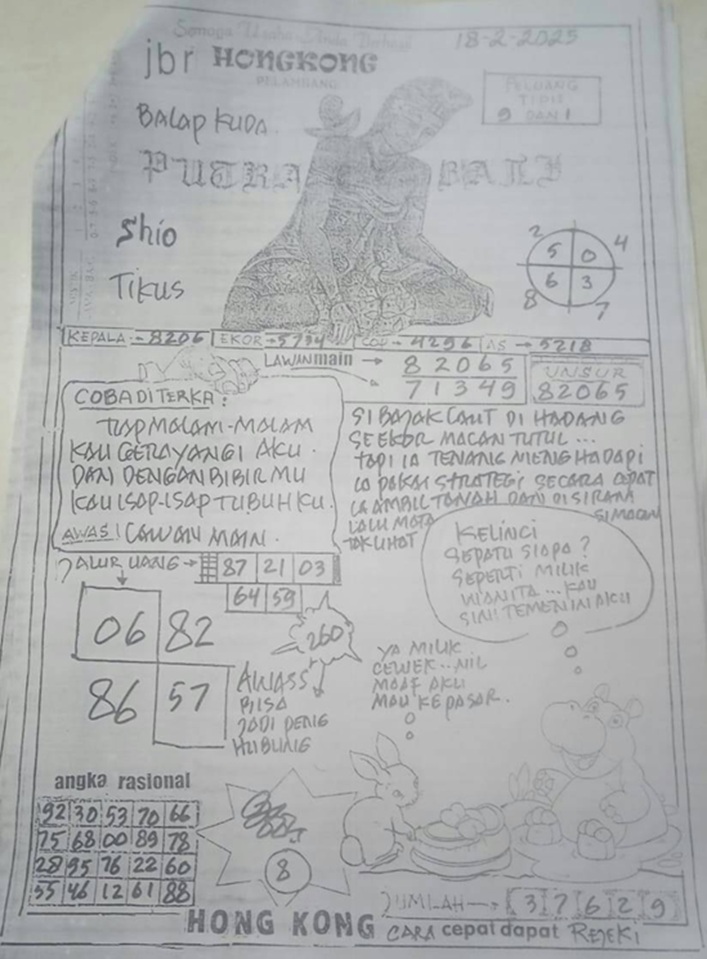 Semoga Usaha Anda Berhasil
18-2-2025
jbr HONGKONG
PELAMBANG
PELUANG
TIPIS
9 DAN 1
BALAP KUDA
PUTRA BALI
Shio
Tikus
2 5 0 4
8 6 3 7
KEPALA:-8206 EKOR→5794 COP→4296 AS→5218
LAWAN main → 8 2 0 6 5
7 1 3 4 9
UNSUR
82065
COBA DITERKA:
TIAP MALAM-MALAM
KAU GERAYANGI AKU.
DAN DENGAN BIBIR MU
KAU ISAP-ISAP TUBUH KU.
AWAS! LAWAN MAIN.
SI BAJAK LAUT DI HADANG
SEEKOR MACAN TUTUL...
TAPI IA TENANG MENGHADAPI
IA PAKAI STRATEGI SECARA CEPAT
IA AMBIL TANAH DAN DI SIRAM
LALU MATA SI MACAN
TAK LIHAT
JALUR UANG → 87 21 03
64 59
06 82
86 57
260
AWASS
BIISA
JADI PENG
HUBUNG
KELINCI
SEPATU SIAPA?
SEPERTI MILIK
WANITA...KAU
SINI TEMENIN AKU
YA MILIK
CEWEK..NIL
MAAF AKU
MAU KE PASAR.
angka rasional
92 30 53 70 66
75 68 00 89 78
28 95 76 22 60
55 46 12 61 88
8
JUMLAH → 3 7 6 2 9
HONG KONG CARA cepat dapat REJEKI